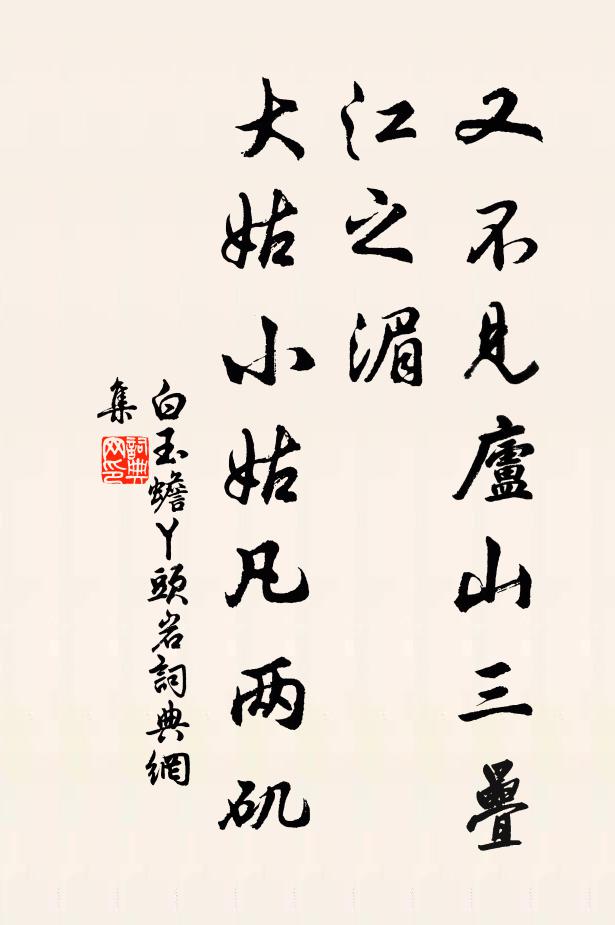 又不見廬山三疊
江之湄
大姑小姑凡两矶
白玉蟾丫頭岩詞典網
集
詞典网印